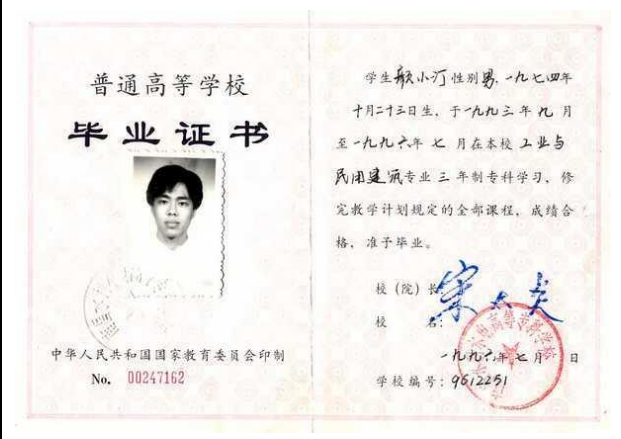 普通高等学校
毕业证书
中华人民共和国国家教育委员会印制
No. 00247162
学生 小汀 性别男,一九七四年
十月二十三日生, 于一九九三年九月
至一九九六年七月在本校工业与
民用建筑专业三年制专科学习, 修
完教学计划规定的全部课程, 成绩合
格, 准予毕业。
校(院)长
宋大夫
校 名:
一九九六年七月 日
学校编号: 9612251